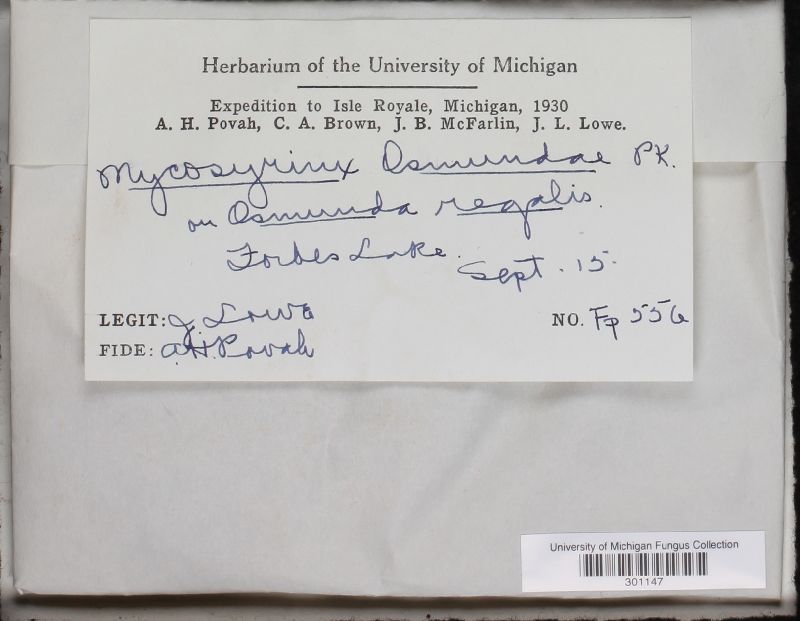 Herbarium of the University of Michigan
Expedition to Isle Royale, Michigan, 1930
A. H. Povah, C. A. Brown, J. B. McFarlin, J. L. Lowe.
Mycosyrinx Osmundae PK.
on Osmunda regalis.
Forbes Lake.
Sept. 15
LEGIT: J. Lowe
NO. Fp 556
FIDE: A.H. Povah
University of Michigan Fungus Collection
301147